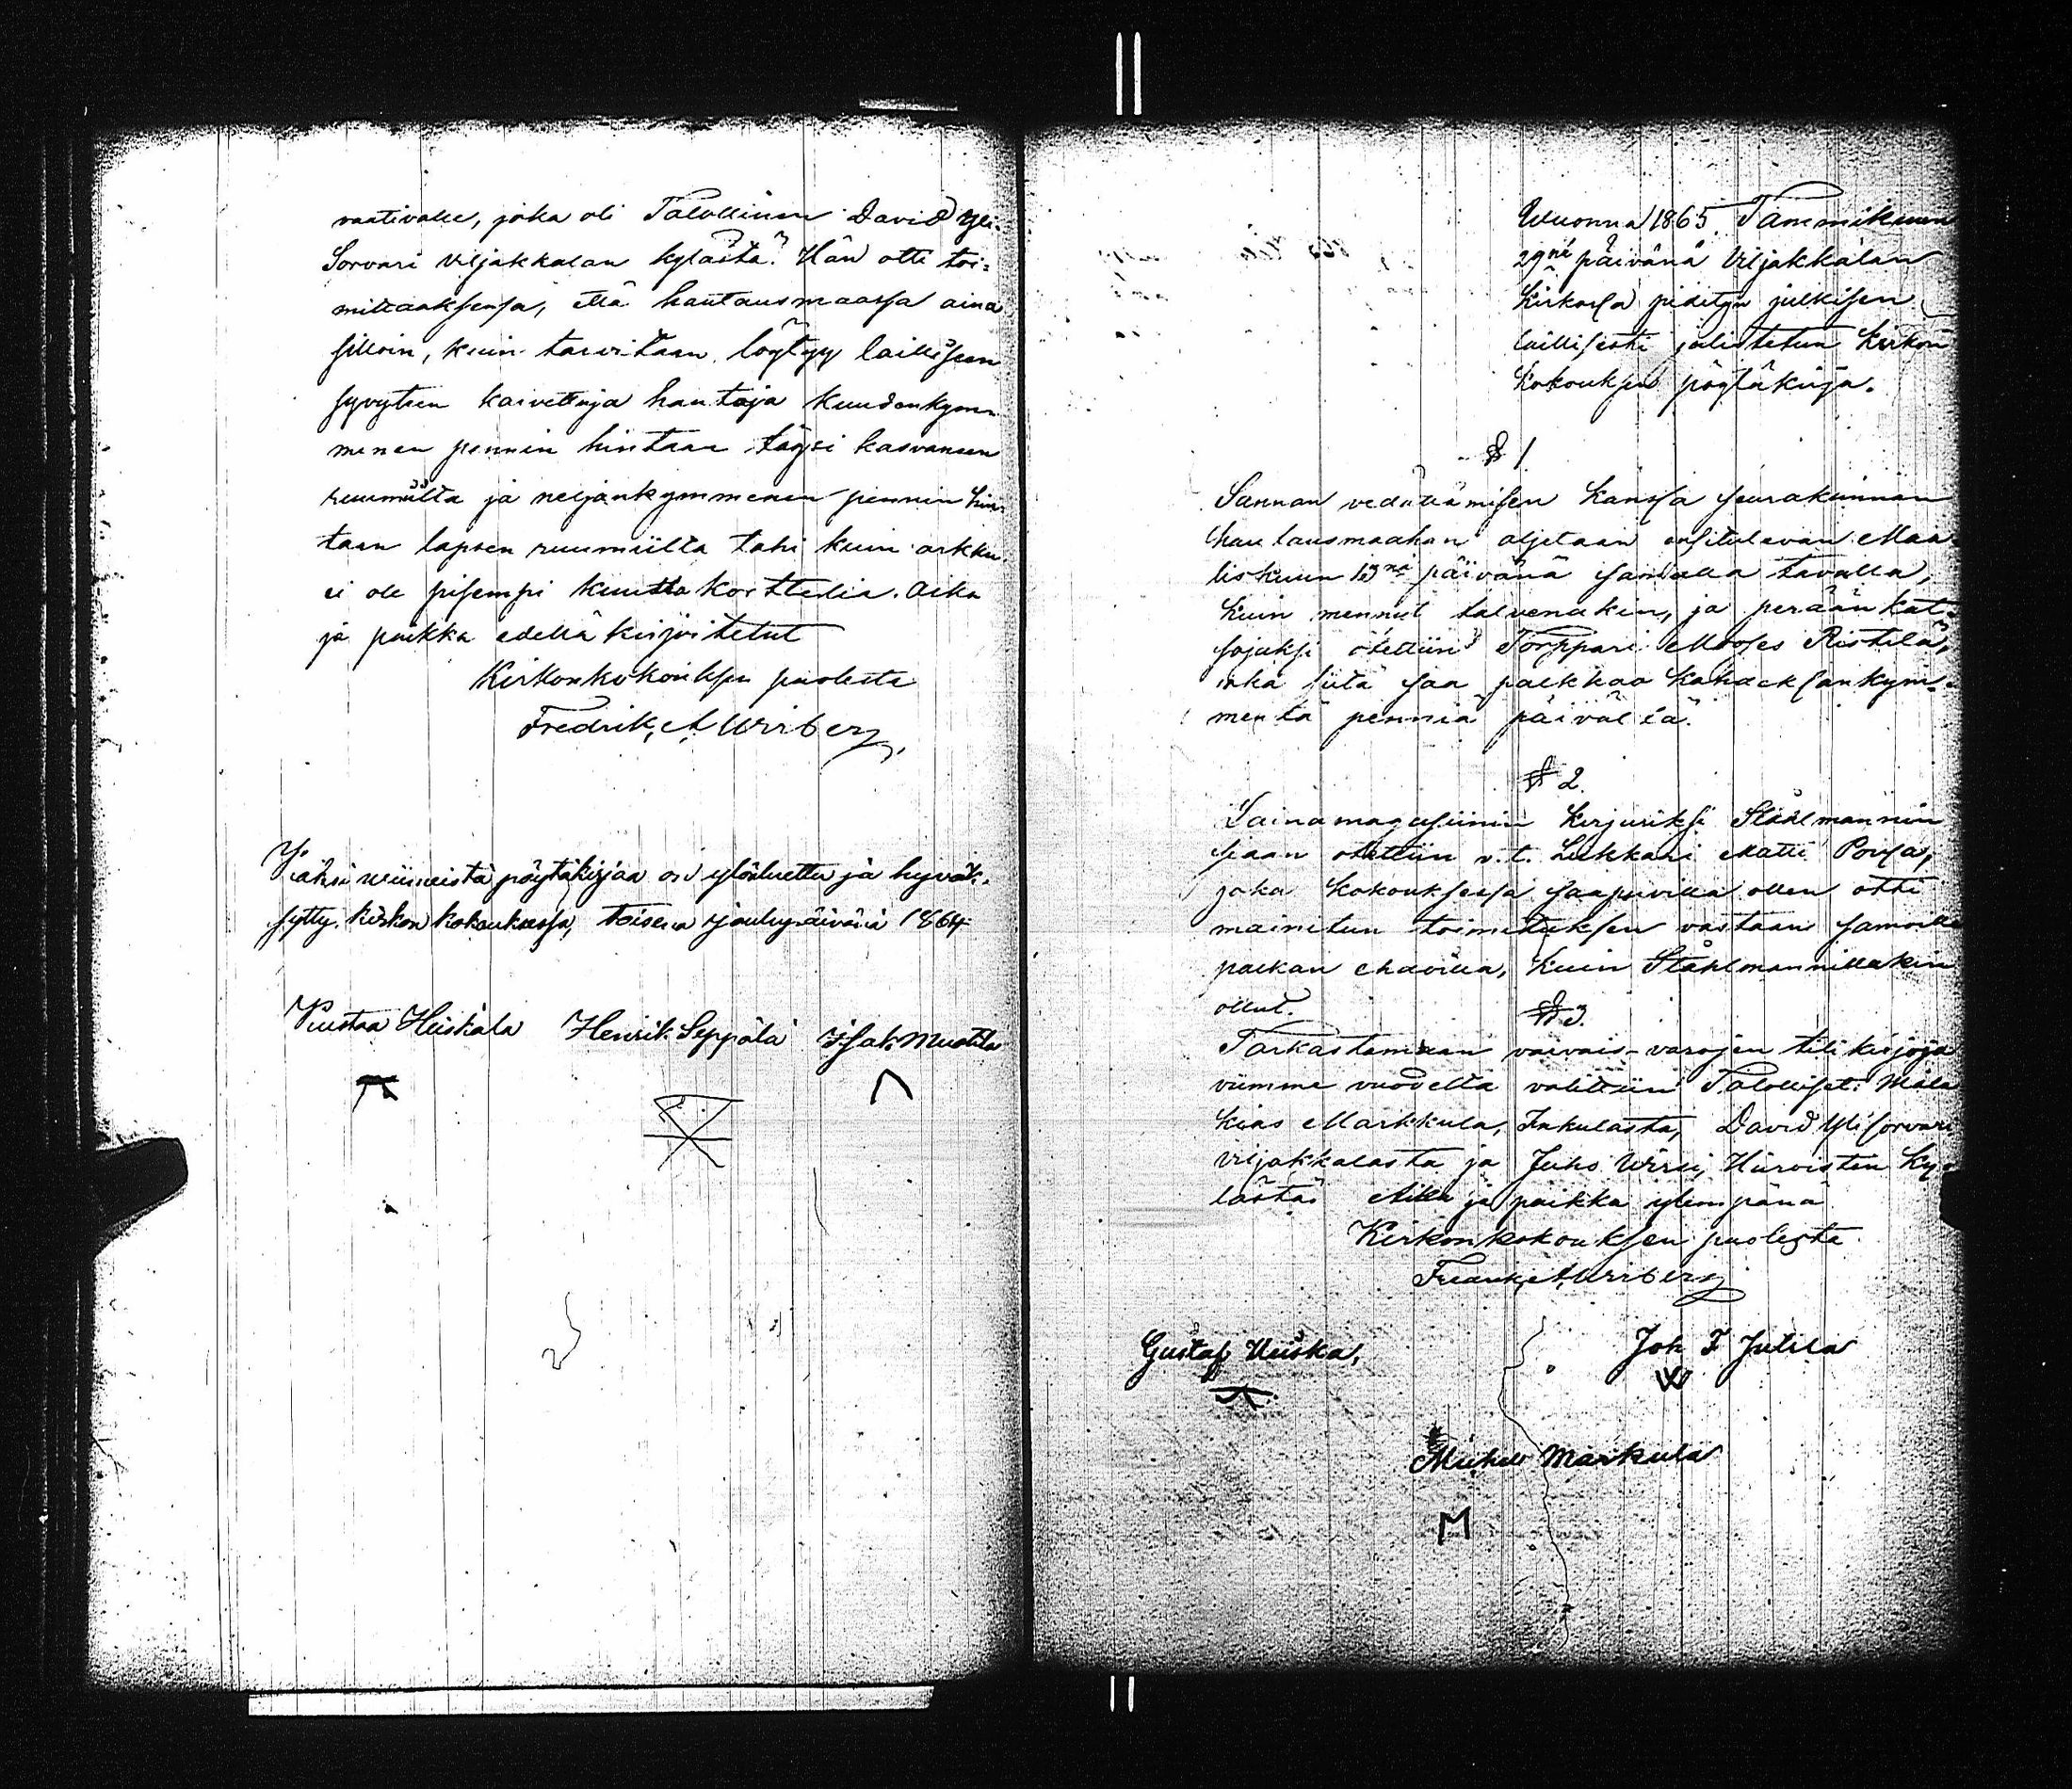 vaativalle, joka oli Talollinen David Yli-
Sorvari Viljakkalan kylästä. Hän otti toi-
mittaaksensa, että hautausmaassa aina
silloin, kuin tarvitaan, löytyy laillisen
syvytsen kaivettuja hautoja kuudenkym-
menen pennin hintaan täysi kasvaneen
ruumiilta ja neljänkymmenen pennin hin-
taan lapsen ruumiilta tahi kuin arkku
ei ole pisempi kuutta korttelia. Aika
ja paikka edellä kirjoitetut
Kirkonkokouksen puolesta
Fredrik A Wirberg.
wiimeistä pöytäkirjaa on ylösluettu ja hyväk-
sytty kirkon kokouksessa, toisena joulupäivänä 1864
Kustaa Heiskala Henrik Seppälä Isak Mustila
Wuonna 1865 Tammikuun
29nä päivänä Viljakkalan
Kirkossa pidetyn julkisen
laillisesti julistetun Kirkon
Kokouksen pöytäkirja.
§ 1
Sannan vedättämisen kanssa seurakunnan
hautausmaahan aljetaan ensitulevan Maa
liskuun 13nä päivänä samalla tavalla,
kuin mennut talvenakin, ja perään kat-
sojaksi otettiin Torppari Mooses Ristilä,
joka siitä saa palkkaa kahdeksankym-
mentä penniä päivältä.
§ 2.
Lainamagasiinin Kirjuriksi Ståhlmannin
siaan otettiin v.t. Lukkari Matti Porsa,
joka kokouksessa saapuvilla ollen otti
mainitun toimituksen vastaan samoilla
palkan ehdoilla, kuin Ståhlmannillakin
ollut.
§ 3.
Tarkastamaan vaivais-varojen tilikirjoja
viimme vuodelta valittiin Talolliset: Mala
kias Markkula, Inkulasta, David Ylisorvari,
Viljakkalasta ja Juho Wirsi, Hiirvisten Ky-
lästä. Aika ja paikka ylempänä
Kirkonkokouksen puolesta
Fredrik A Wirberg
Gustaf Heiska, Joh F Jutila
W
Mickel Markula
M